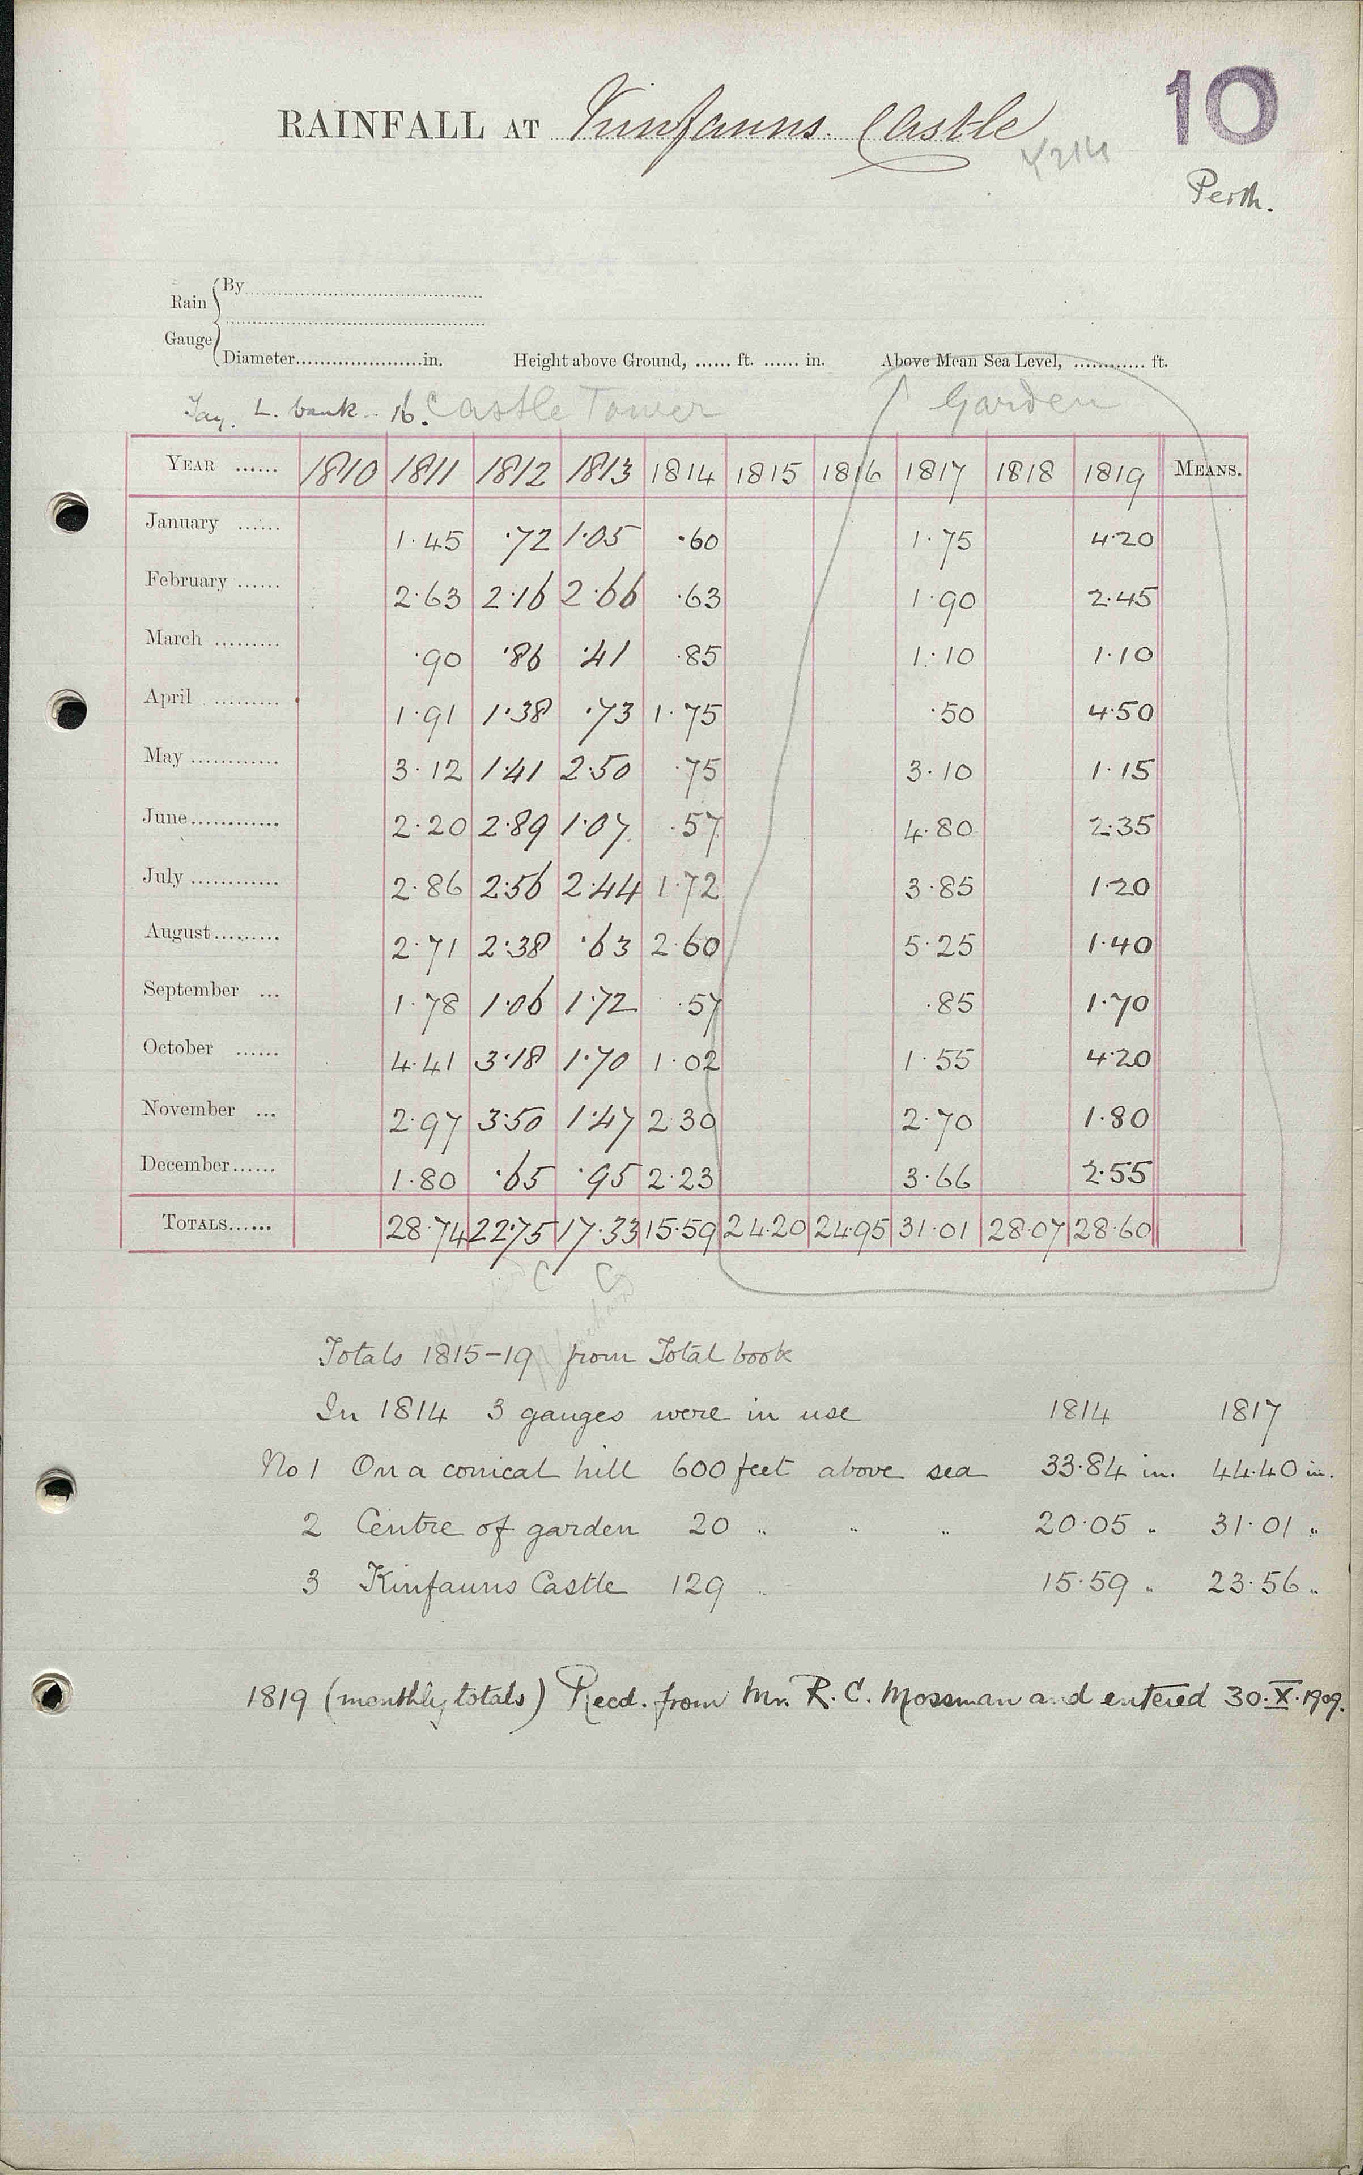 10
RAINFALL AT Kinfauns Castle
Perth.
Rain Gauge { By
Diameter in. Height above Ground, ft. in. Above Mean Sea Level, ft.
Tay. L. bank 16. Castle Tower Garden
YEAR 1810 1811 1812 1813 1814 1815 1816 1817 1818 1819 MEANS.
January 1.45 .72 1.05 .60 1.75 4.20
February 2.63 2.16 2.66 .63 1.90 2.45
March .90 .86 .41 .85 1.10 1.10
April 1.91 1.38 .73 1.75 .50 4.50
May 3.12 1.41 2.50 .75 3.10 1.15
June 2.20 2.89 1.07 .57 4.80 2.35
July 2.86 2.56 2.44 1.72 3.85 1.20
August 2.71 2.38 .63 2.60 5.25 1.40
September 1.78 1.06 1.72 .57 .85 1.70
October 4.41 3.18 1.70 1.02 1.55 4.20
November 2.97 3.50 1.47 2.30 2.70 1.80
December 1.80 .65 .95 2.23 3.66 2.55
TOTALS 28.74 22.75 17.33 15.59 24.20 24.95 31.01 28.07 28.60
C C
Totals 1815-19 from Total book
In 1814 3 gauges were in use 1814 1817
No 1 On a conical hill 600 feet above sea 33.84 in. 44.40 in.
2 Centre of garden 20 " " " 20.05 " 31.01 "
3 Kinfauns Castle 129 " 15.59 " 23.56 "
1819 (monthly totals) Recd. from Mr. R. C. Mossman and entered 30.X.1909.